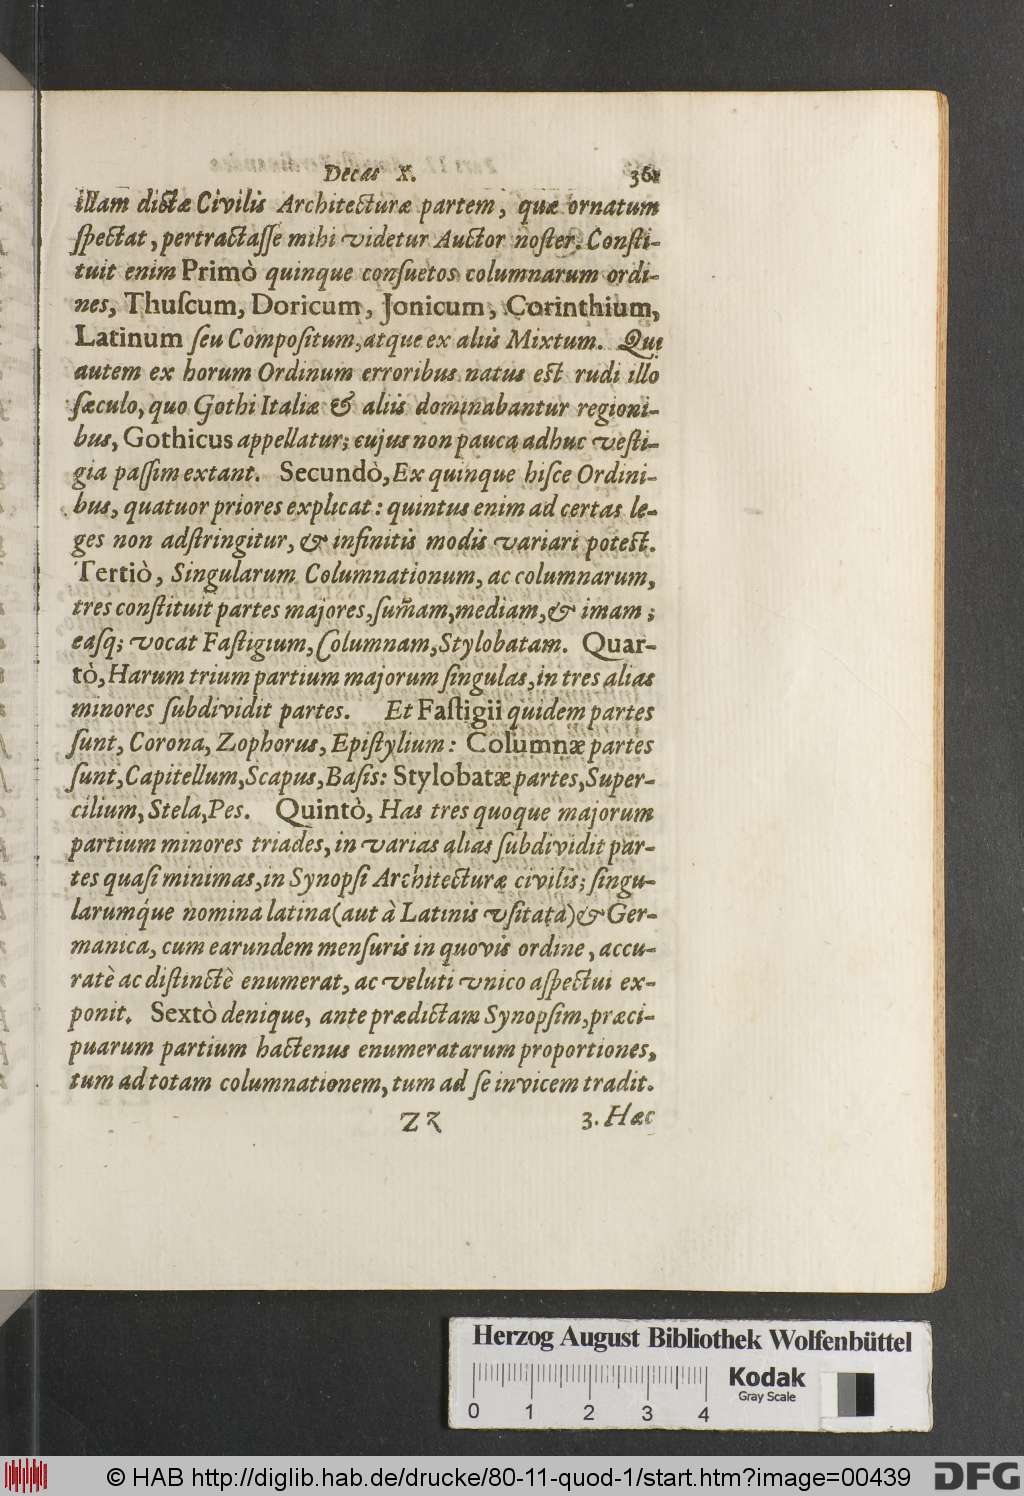 Decas X. 361
illam dictæ Civilis Architecturæ partem, quæ ornatum
ſpectat, pertractaſſe mihi videtur Auctor noſter. Conſti-
tuit enim Primò quinque conſuetos columnarum ordi-
nes, Thuſcum, Doricum, Jonicum, Corinthium,
Latinum ſeu Compoſitum, atque ex aliis Mixtum. Qui
autem ex horum Ordinum erroribus natus est rudi illo
ſæculo, quo Gothi Italiæ & aliis dominabantur regioni-
bus, Gothicus appellatur; cujus non pauca adhuc veſti-
gia paſſim extant. Secundò, Ex quinque hiſce Ordini-
bus, quatuor priores explicat: quintus enim ad certas le-
ges non adſtringitur, & infinitis modis variari potest.
Tertiò, Singularum Columnationum, ac columnarum,
tres conſtituit partes majores, ſum̃am, mediam, & imam;
eaſq; vocat Faſtigium, Columnam, Stylobatam. Quar-
tò, Harum trium partium majorum ſingulas, in tres alias
minores ſubdividit partes. Et Faſtigii quidem partes
ſunt, Corona, Zophorus, Epiſtylium: Columnæ partes
ſunt, Capitellum, Scapus, Baſis: Stylobatæ partes, Super-
cilium, Stela, Pes. Quintò, Has tres quoque majorum
partium minores triades, in varias alias ſubdividit par-
tes quaſi minimas, in Synopſi Architecturæ civilis; ſingu-
larumq́ue nomina latina (aut à Latinis vſitata) & Ger-
manica, cum earundem menſuris in quovis ordine, accu-
ratè ac diſtinctè enumerat, ac veluti vnico aſpectui ex-
ponit. Sextò denique, ante prædictam Synopſim, præci-
puarum partium hactenus enumeratarum proportiones,
tum ad totam columnationem, tum ad ſe invicem tradit.
Zz 3. Hæc
Herzog August Bibliothek Wolfenbüttel
0 1 2 3 4
Kodak
Gray Scale
© HAB http://diglib.hab.de/drucke/80-11-quod-1/start.htm?image=00439
DFG